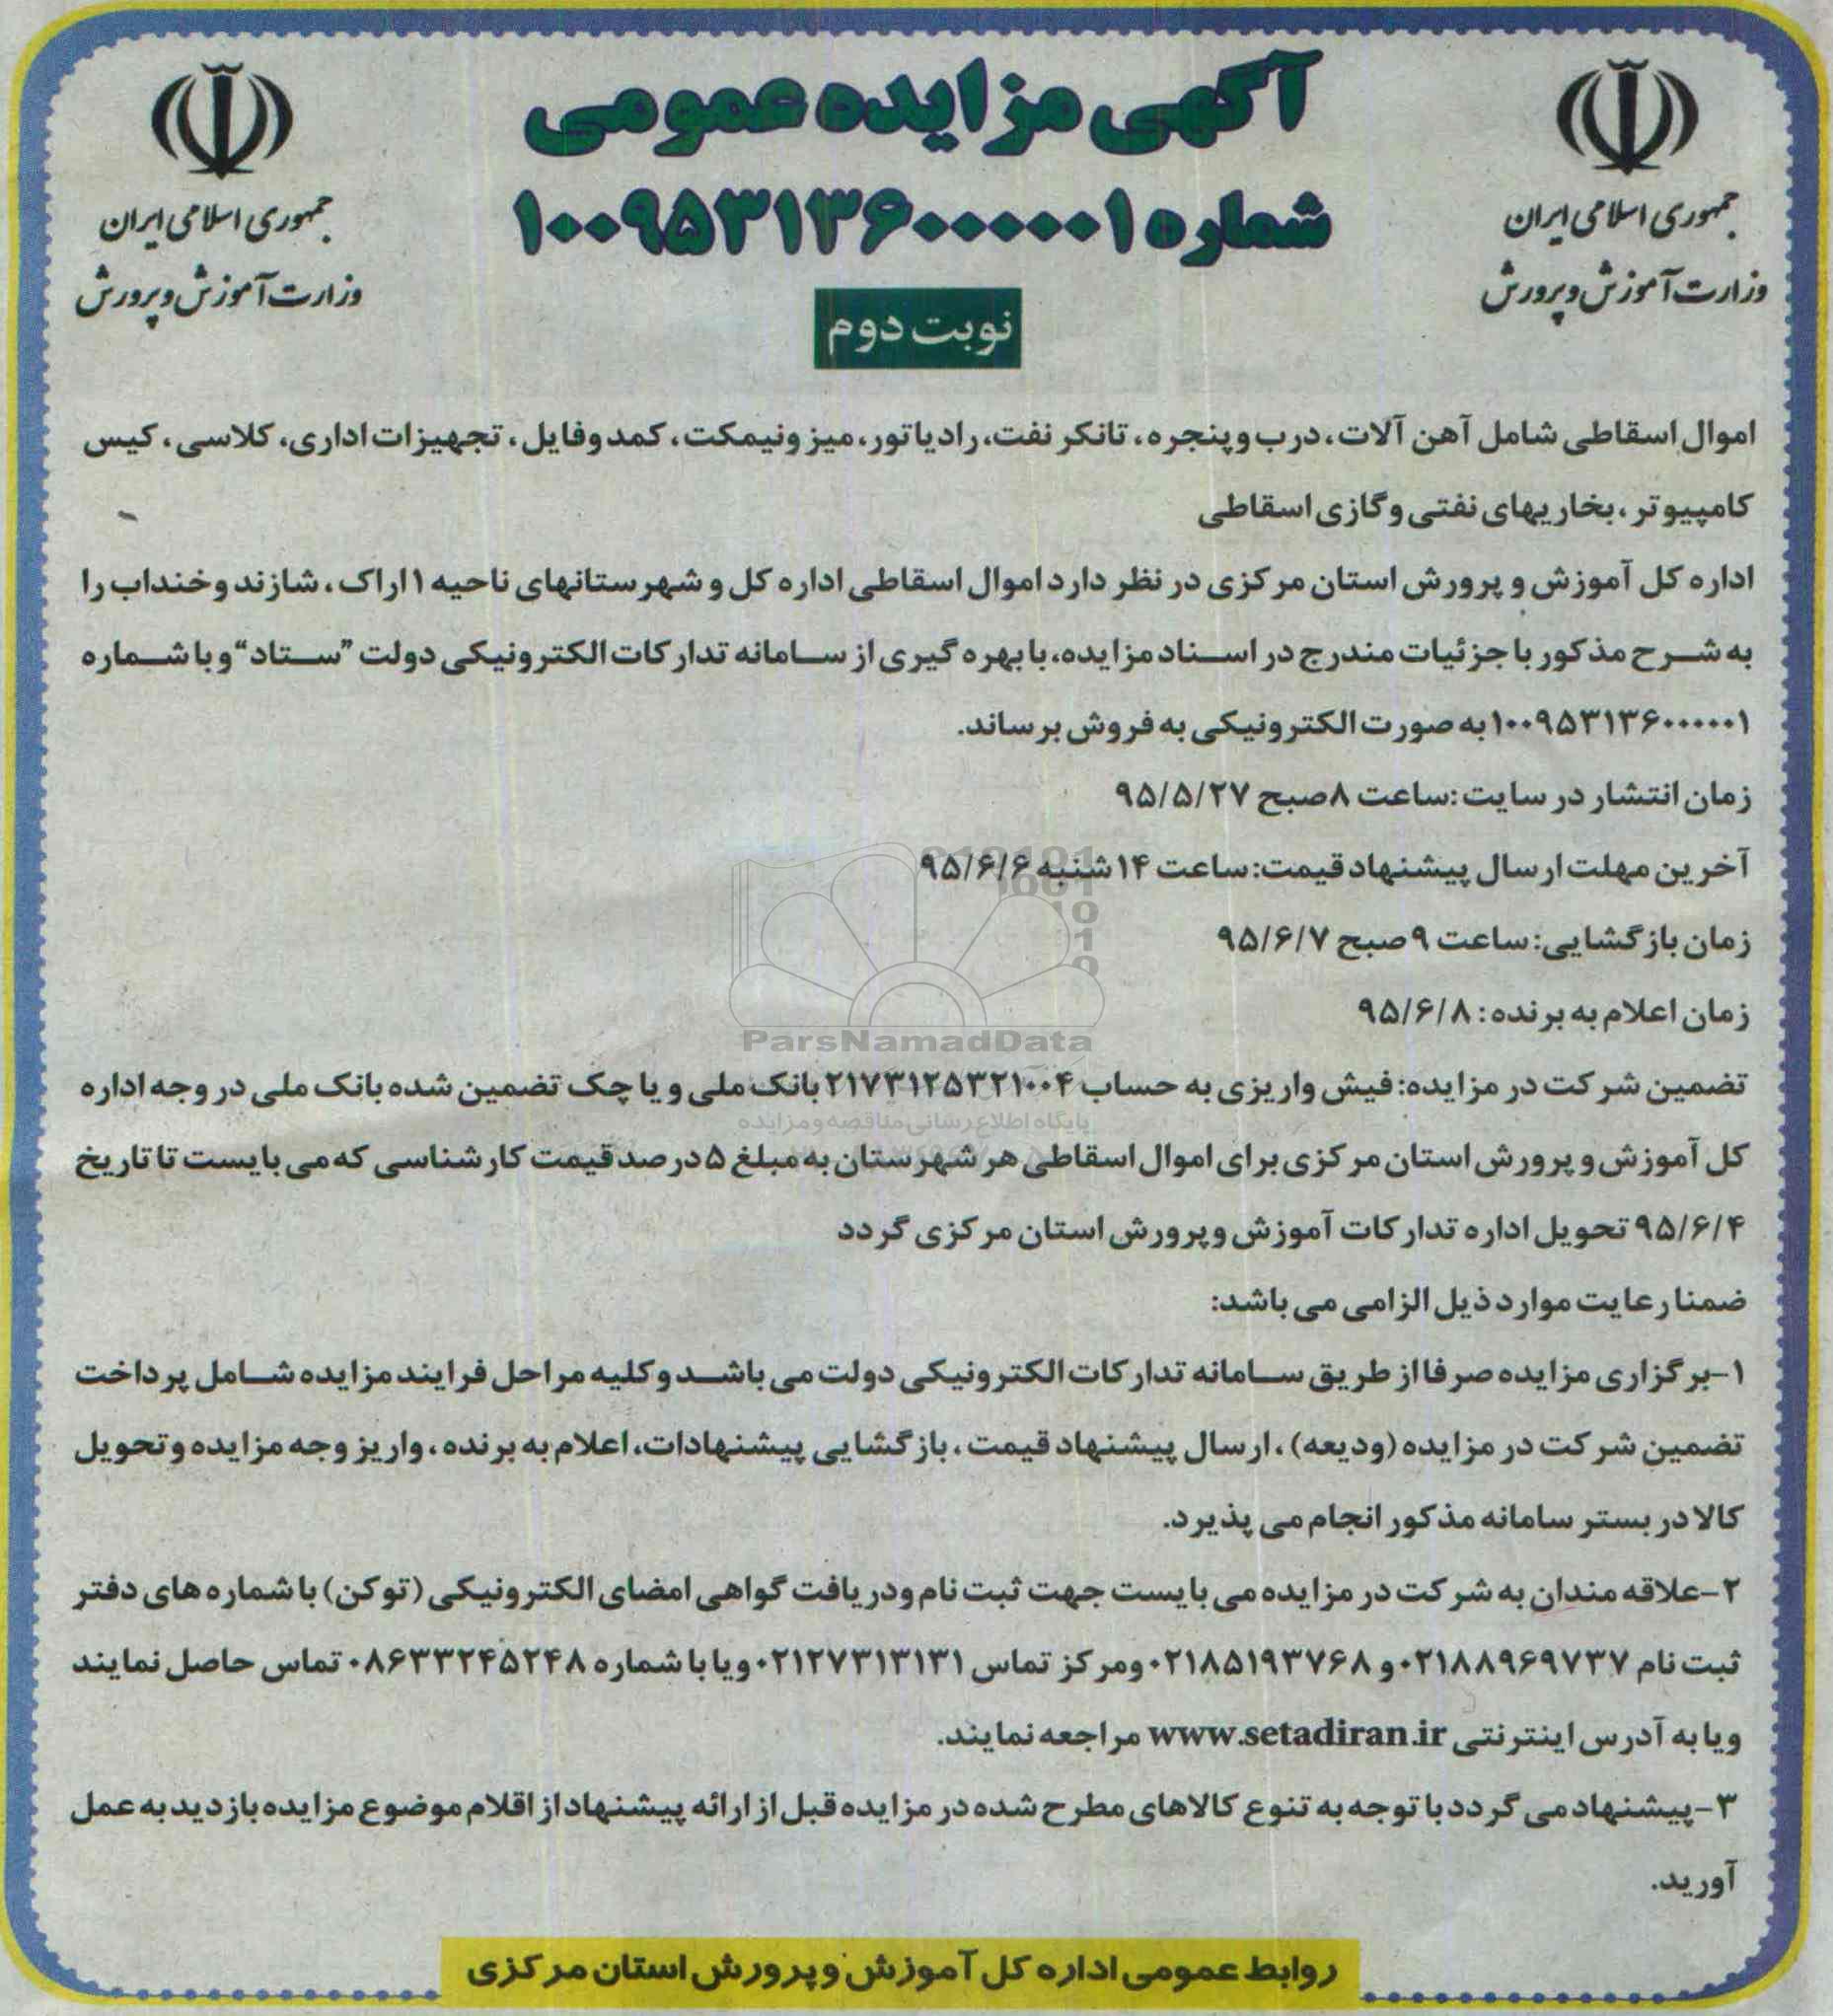 جمهوری اسلامی ایران
وزارت آموزش و پرورش
آگهی مزایده عمومی
شماره ۱۰۰۹۵۳۱۳۶۰۰۰۰۰۰۱
نوبت دوم
جمهوری اسلامی ایران
وزارت آموزش و پرورش
اموال اسقاطی شامل آهن آلات، درب و پنجره، تانکر نفت، رادیاتور، میز و نیمکت، کمد و فایل، تجهیزات اداری، کلاسی، کیس
کامپیوتر، بخاریهای نفتی و گازی اسقاطی
اداره کل آموزش و پرورش استان مرکزی در نظر دارد اموال اسقاطی اداره کل و شهرستانهای ناحیه ۱ اراک، شازند و خنداب را
به شرح مذکور با جزئیات مندرج در اسناد مزایده، با بهره گیری از سامانه تدارکات الکترونیکی دولت "ستاد" و با شماره
۱۰۰۹۵۳۱۳۶۰۰۰۰۰۰۱ به صورت الکترونیکی به فروش برساند.
زمان انتشار در سایت: ساعت ۸ صبح ۹۵/۵/۲۷
آخرین مهلت ارسال پیشنهاد قیمت: ساعت ۱۴ شنبه ۹۵/۶/۶
زمان بازگشایی: ساعت ۹ صبح ۹۵/۶/۷
زمان اعلام به برنده: ۹۵/۶/۸
ParsNamadData
تضمین شرکت در مزایده: فیش واریزی به حساب ۲۱۷۳۱۲۵۳۲۱۰۰۴ بانک ملی و یا چک تضمین شده بانک ملی در وجه اداره
پایگاه اطلاع رسانی مناقصه و مزایده
کل آموزش و پرورش استان مرکزی برای اموال اسقاطی هر شهرستان به مبلغ ۵ درصد قیمت کارشناسی که می بایست تا تاریخ
۹۵/۶/۴ تحویل اداره تدارکات آموزش و پرورش استان مرکزی گردد
ضمنا رعایت موارد ذیل الزامی می باشد:
۱-برگزاری مزایده صرفا از طریق سامانه تدارکات الکترونیکی دولت می باشد و کلیه مراحل فرایند مزایده شامل پرداخت
تضمین شرکت در مزایده (ودیعه)، ارسال پیشنهاد قیمت، بازگشایی پیشنهادات، اعلام به برنده، واریز وجه مزایده و تحویل
کالا در بستر سامانه مذکور انجام می پذیرد.
۲-علاقه مندان به شرکت در مزایده می بایست جهت ثبت نام ودریافت گواهی امضای الکترونیکی (توکن) با شماره های دفتر
ثبت نام ۰۲۱۸۸۹۶۹۷۳۷ و ۰۲۱۸۵۱۹۳۷۶۸ ومرکز تماس ۰۲۱۲۷۳۱۳۱۳۱ ویا با شماره ۰۸۶۳۳۲۴۵۲۴۸ تماس حاصل نمایند
ویا به آدرس اینترنتی www.setadiran.ir مراجعه نمایند.
۳-پیشنهاد می گردد با توجه به تنوع کالاهای مطرح شده در مزایده قبل از ارائه پیشنهاد از اقلام موضوع مزایده بازدید به عمل
آورید.
روابط عمومی اداره کل آموزش و پرورش استان مرکزی